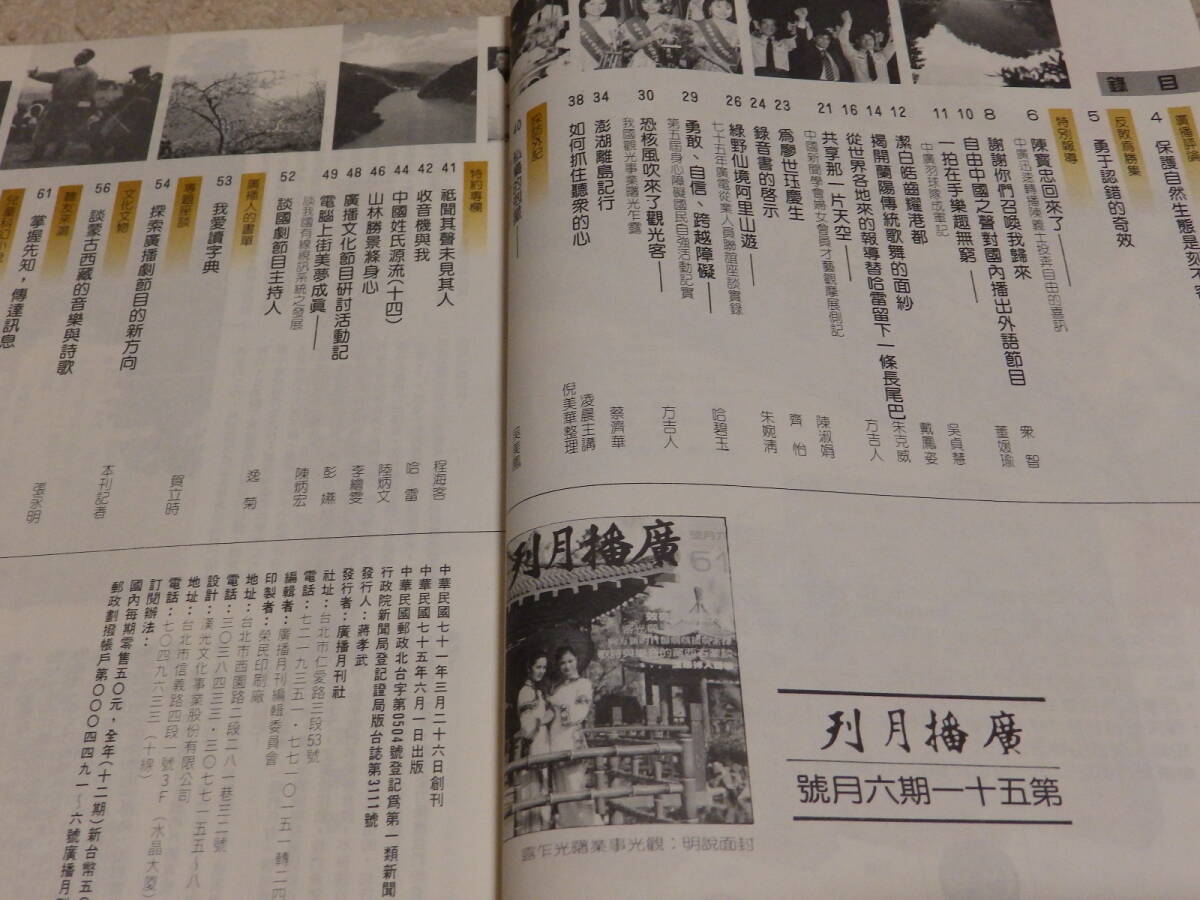 目錄
廣播評論
4 保護自然生態是刻不容
反敗為勝集
5 勇于認錯的奇效
特別報導
6 陳寶忠回來了——
中廣迅速轉播陳義士投奔自由的喜訊
8 謝謝你們召喚我歸來 衆智
10 自由中國之聲對國內播出外語節目 董媛瑜
11 一拍在手樂趣無窮——
中廣羽球隊成軍記 吳貞慧
12 潔白皓齒耀港都 戴鳳姿
14 揭開蘭陽傳統歌舞的面紗 朱克威
16 從世界各地來的報導替哈雷留下一條長尾巴 方吉人
21 共享那一片天空——
中國新聞學會婦女會員才藝觀摩展側記 陳淑娟
23 為廖世珏慶生 齊怡
24 錄音書的啓示 朱婉清
26 綠野仙境阿里山遊——
七十五年廣電從業人員聯誼座談實錄 哈碧玉
29 勇敢、自信、跨越障礙——
第五屆身心障礙國民自強活動記實
30 恐核風吹來了觀光客——
我國觀光事業曙光乍露 方吉人
34 澎湖離島記行 蔡濟華
38 如何抓住聽衆的心 凌晨主講
倪美華整理
採訪外記
40
特約專欄
41 祗聞其聲未見其人 程海客
42 收音機與我 哈雷
44 中國姓氏源流(十四) 陸炳文
46 山林勝景滌身心 李繪雯
48 廣播文化節目研討活動記 彭嬿
49 電腦上街美夢成眞——
談我國有線視訊系統之發展 陳炳宏
52 談國劇節目主持人
廣播人的書單
53 我愛讀字典 逸菊
專題座談
54 探索廣播劇節目的新方向 賀立時
文化文物
56 談蒙古西藏的音樂與詩歌 本刊記者
61 掌握先知,傳達訊息 張永明
廣播月刊
61
廣播月刊
第五十一期六月號
封面說明：觀光事業曙光乍露
中華民國七十一年三月二十六日創刊
中華民國七十五年六月一日出版
中華民國郵政北台字第0504號登記為第一類新聞
行政院新聞局登記證局版台誌第3111號
發行人：蔣孝武
發行者：廣播月刊社
社址：台北市仁愛路三段53號
電話：七二一九三五一·七七一〇一五一轉二四
編輯者：廣播月刊編輯委員會
印製者：榮民印刷廠
地址：台北市西園路二段二八一巷三二號
電話：三〇三八四三三·三〇七七一五五～八
設計：漢光文化事業股份有限公司
地址：台北市信義路四段一號3F（水晶大廈）
電話：七〇四九六三三（十線）
訂閱辦法：
國內每期零售五〇元，全年（十二期）新台幣五〇
郵政劃撥帳戶第〇〇〇四四九一～六號廣播月刊